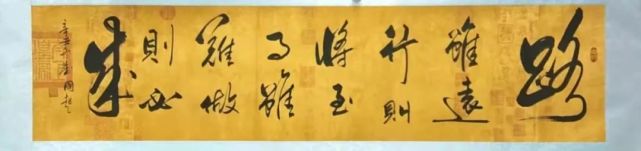 路
雖遠
行則
將至
事雖
難做
則必
成